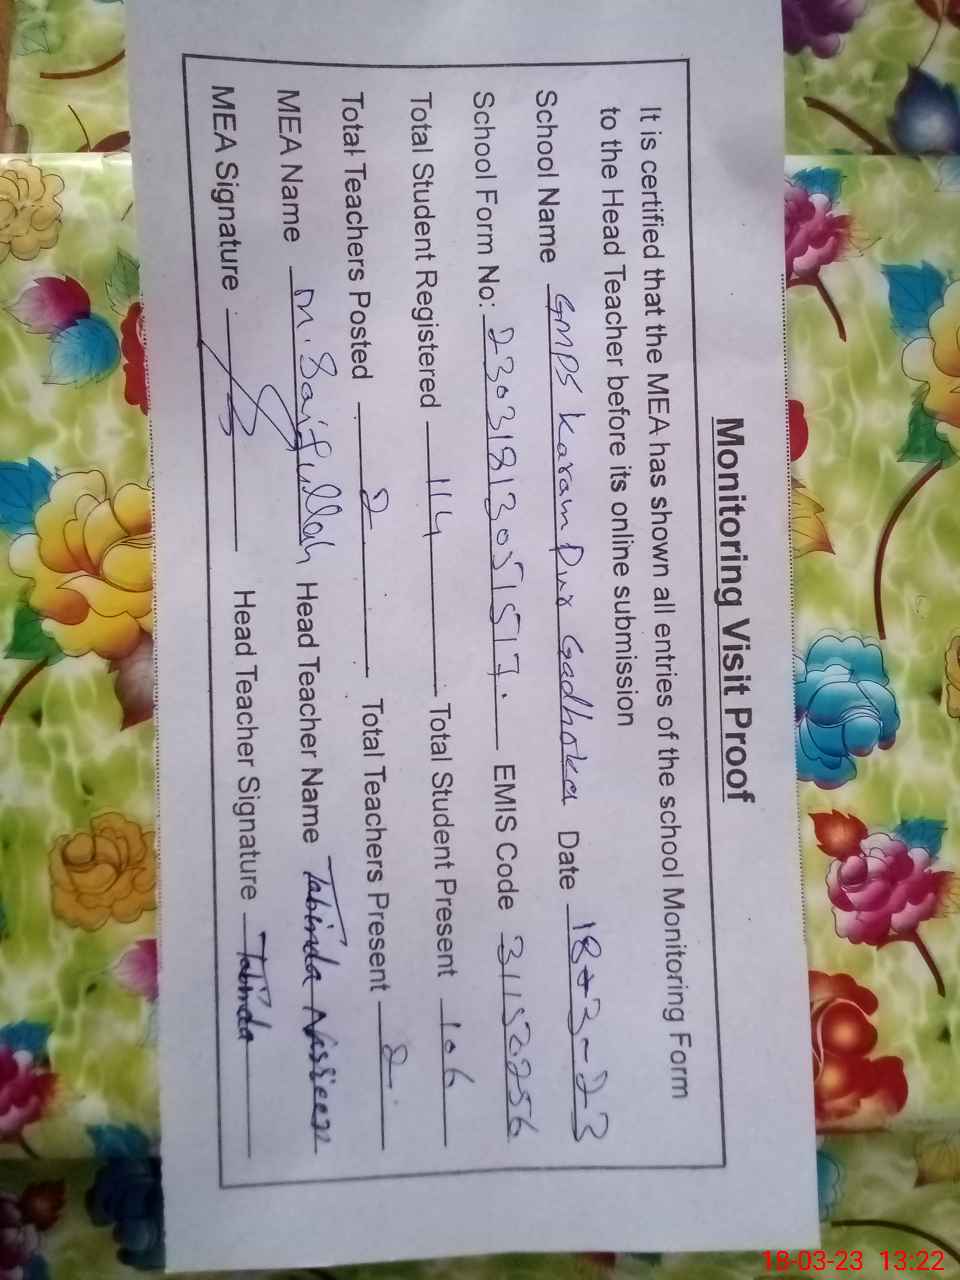 Monitoring Visit Proof
It is certified that the MEA has shown all entries of the school Monitoring Form
to the Head Teacher before its online submission
School Name GMPS Karam Pur Gadhoka Date 18-3-23
School Form No: 23031813051517. EMIS Code 31150256
Total Student Registered 114 Total Student Present 106
Total Teachers Posted 2 Total Teachers Present 2
MEA Name M. Saifullah Head Teacher Name Tabinda Nasreen
MEA Signature Head Teacher Signature Tabinda
18-03-23 13:22